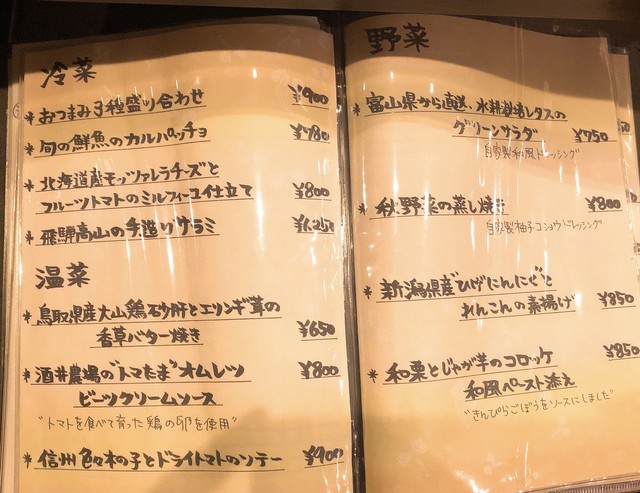 冷菜
*おつまみ3種盛り合わせ ¥900
*旬の鮮魚のカルパッチョ ¥780
*北海道産モッツァレラチーズと
フルーツトマトのミルフィーユ仕立て ¥800
*飛騨高山の手造りサラミ ¥1,250
温菜
*鳥取県産大山鶏砂肝とエリンギ茸の
香草バター焼き ¥650
*酒井農場の"トマたま"オムレツ
ビーツクリームソース ¥800
"トマトを食べて育った鶏の卵を使用"
*信州色々木の子とドライトマトのソテー ¥900
野菜
*富山県から直送、水耕栽培レタスの
グリーンサラダ ¥750
自家製和風ドレッシング
*秋野菜の蒸し焼き ¥800
自家製柚子コショウドレッシング
*新潟県産"ひげにんにく"と
れんこんの素揚げ ¥850
*和栗とじゃが芋のコロッケ ¥850
和風ペースト添え
"きんぴらごぼうをソースにしました"